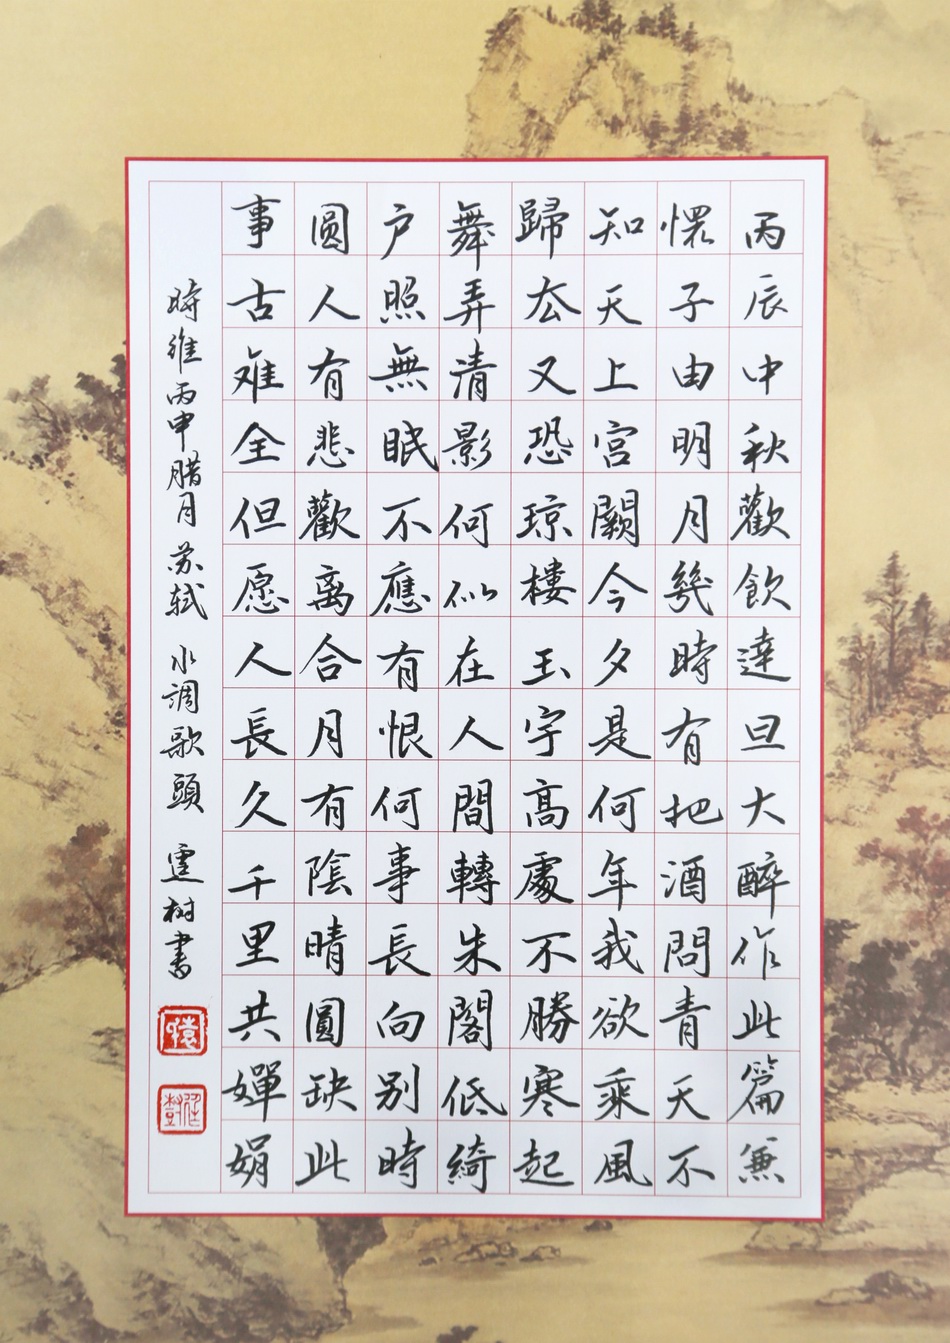 丙辰中秋歡飲達旦大醉作此篇兼
懷子由明月幾時有把酒問青天不
知天上宮闕今夕是何年我欲乘風
歸去又恐琼樓玉宇高處不勝寒起
舞弄清影何似在人間轉朱閣低綺
户照無眠不應有恨何事長向别時
圓人有悲歡离合月有陰晴圓缺此
事古难全但愿人長久千里共嬋娟
時維丙申腊月 苏轼 水調歌頭 树書